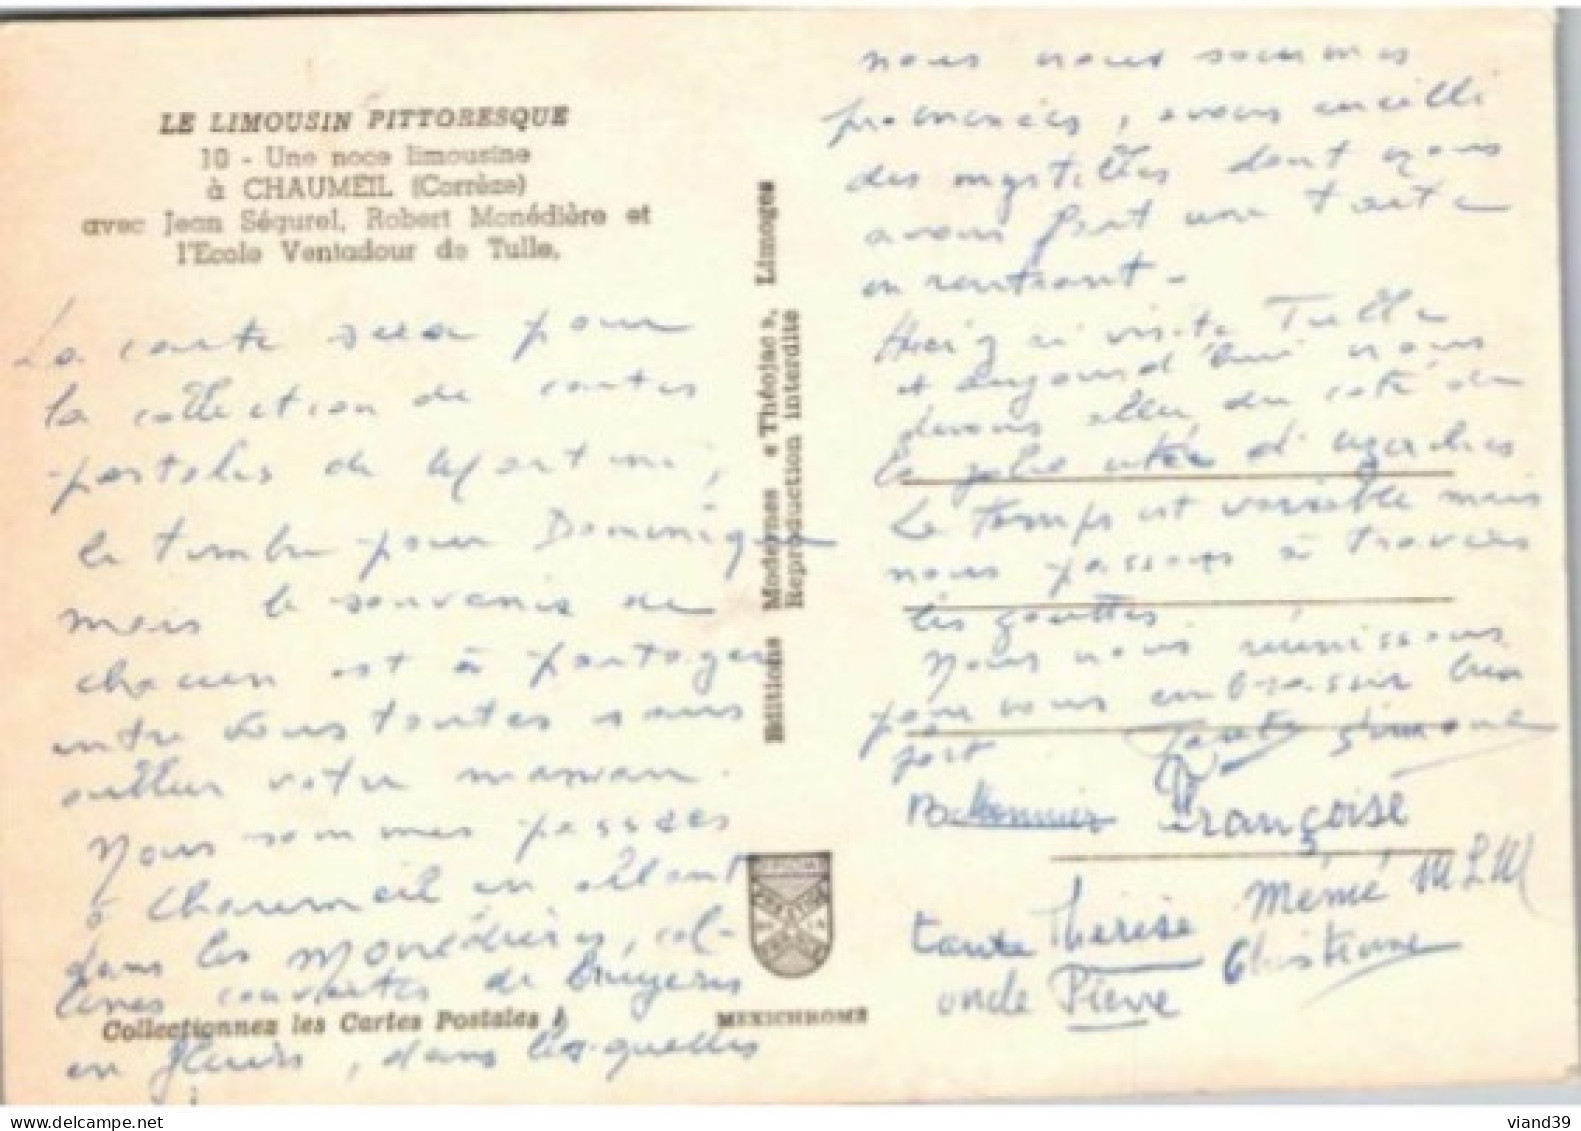 LE LIMOUSIN PITTORESQUE
10 - Une noce limousine
à CHAUMEIL (Corrèze)
avec Jean Ségurel, Robert Monédière et
l'Ecole Ventadour de Tulle.
La carte sera pour
la collection de cartes
postales de Martine,
le timbre pour Dominique
mais le souvenir de
chacun est à partager
entre vous toutes sans
oublier votre maman.
Nous sommes passées
à Chaumeil en allant
dans les Monédières, col-
lines couvertes de bruyères
en fleurs, dans lesquelles
Collectionnez les Cartes Postales !
MEXICHROME
Editions Modernes « Théojac », Limoges
Reproduction interdite
nous nous sommes
promenées, avons cueilli
des myrtilles dont nous
avons fait une tarte
en rentrant -
Hier j'ai visité Tulle
et aujourd'hui nous
devons aller du côté de
la jolie cité d'Uzerches
Le temps est variable mais
nous passons à travers
les gouttes
Nous nous réunissons
pour vous embrasser bien
fort Tante Simone
Françoise
Mémé MLM
tante Thérèse
Christiane
oncle Pierre
viand39